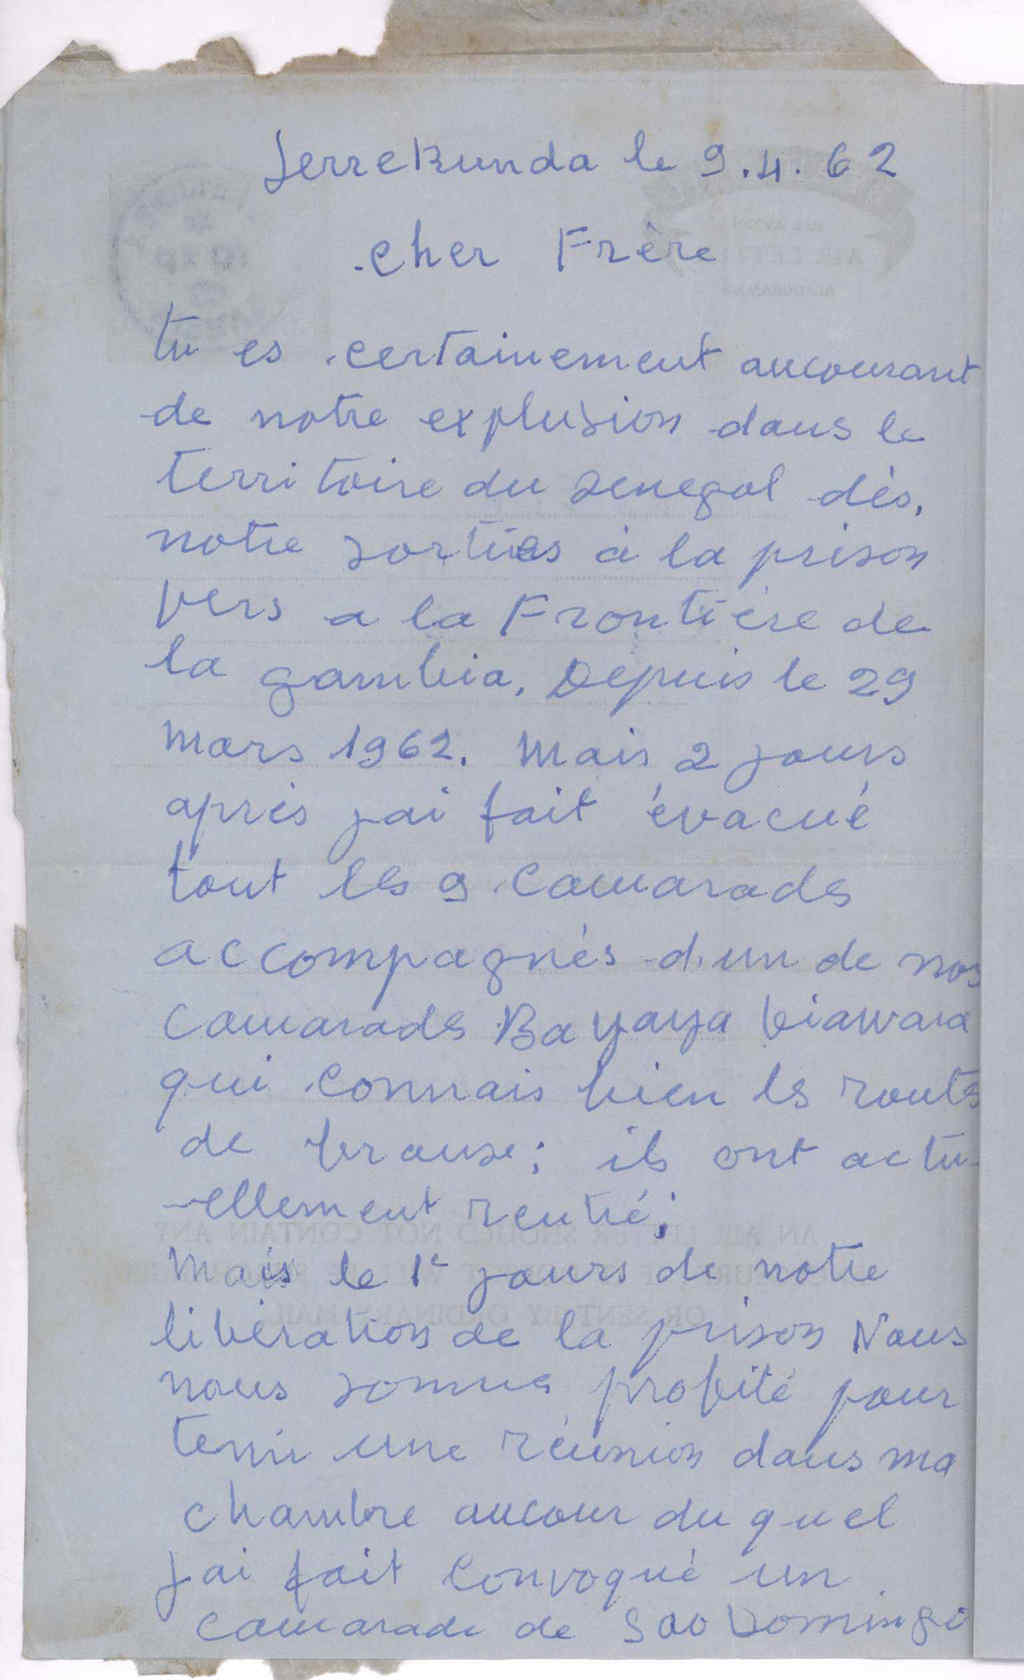 Serrekunda le 9.4.62
cher Frère
tu es certainement aucourant
de notre explusion dans le
territoire du senegal dès,
notre sorties à la prison
vers a la Frontière de
la gambia, Depuis le 29
Mars 1962. Mais 2 jours
après jai fait évacué
tout les 9 Camarads
accompagnés d'un de nos
Camarads Bayaya
qui connais bien ls routs
de brause; ils ont actu-
-ellement rentré;
Mais le 1r jours de notre
libération de la prison Nous
nous sommes profité pour
tenir une réunion dans ma
chambre aucour du quel
jai fait convoqué un
camarade de Sao Domingo
AN AIR LETTER SHOULD NOT CONTAIN ANY
OR SENT BY ORDINARY MAIL